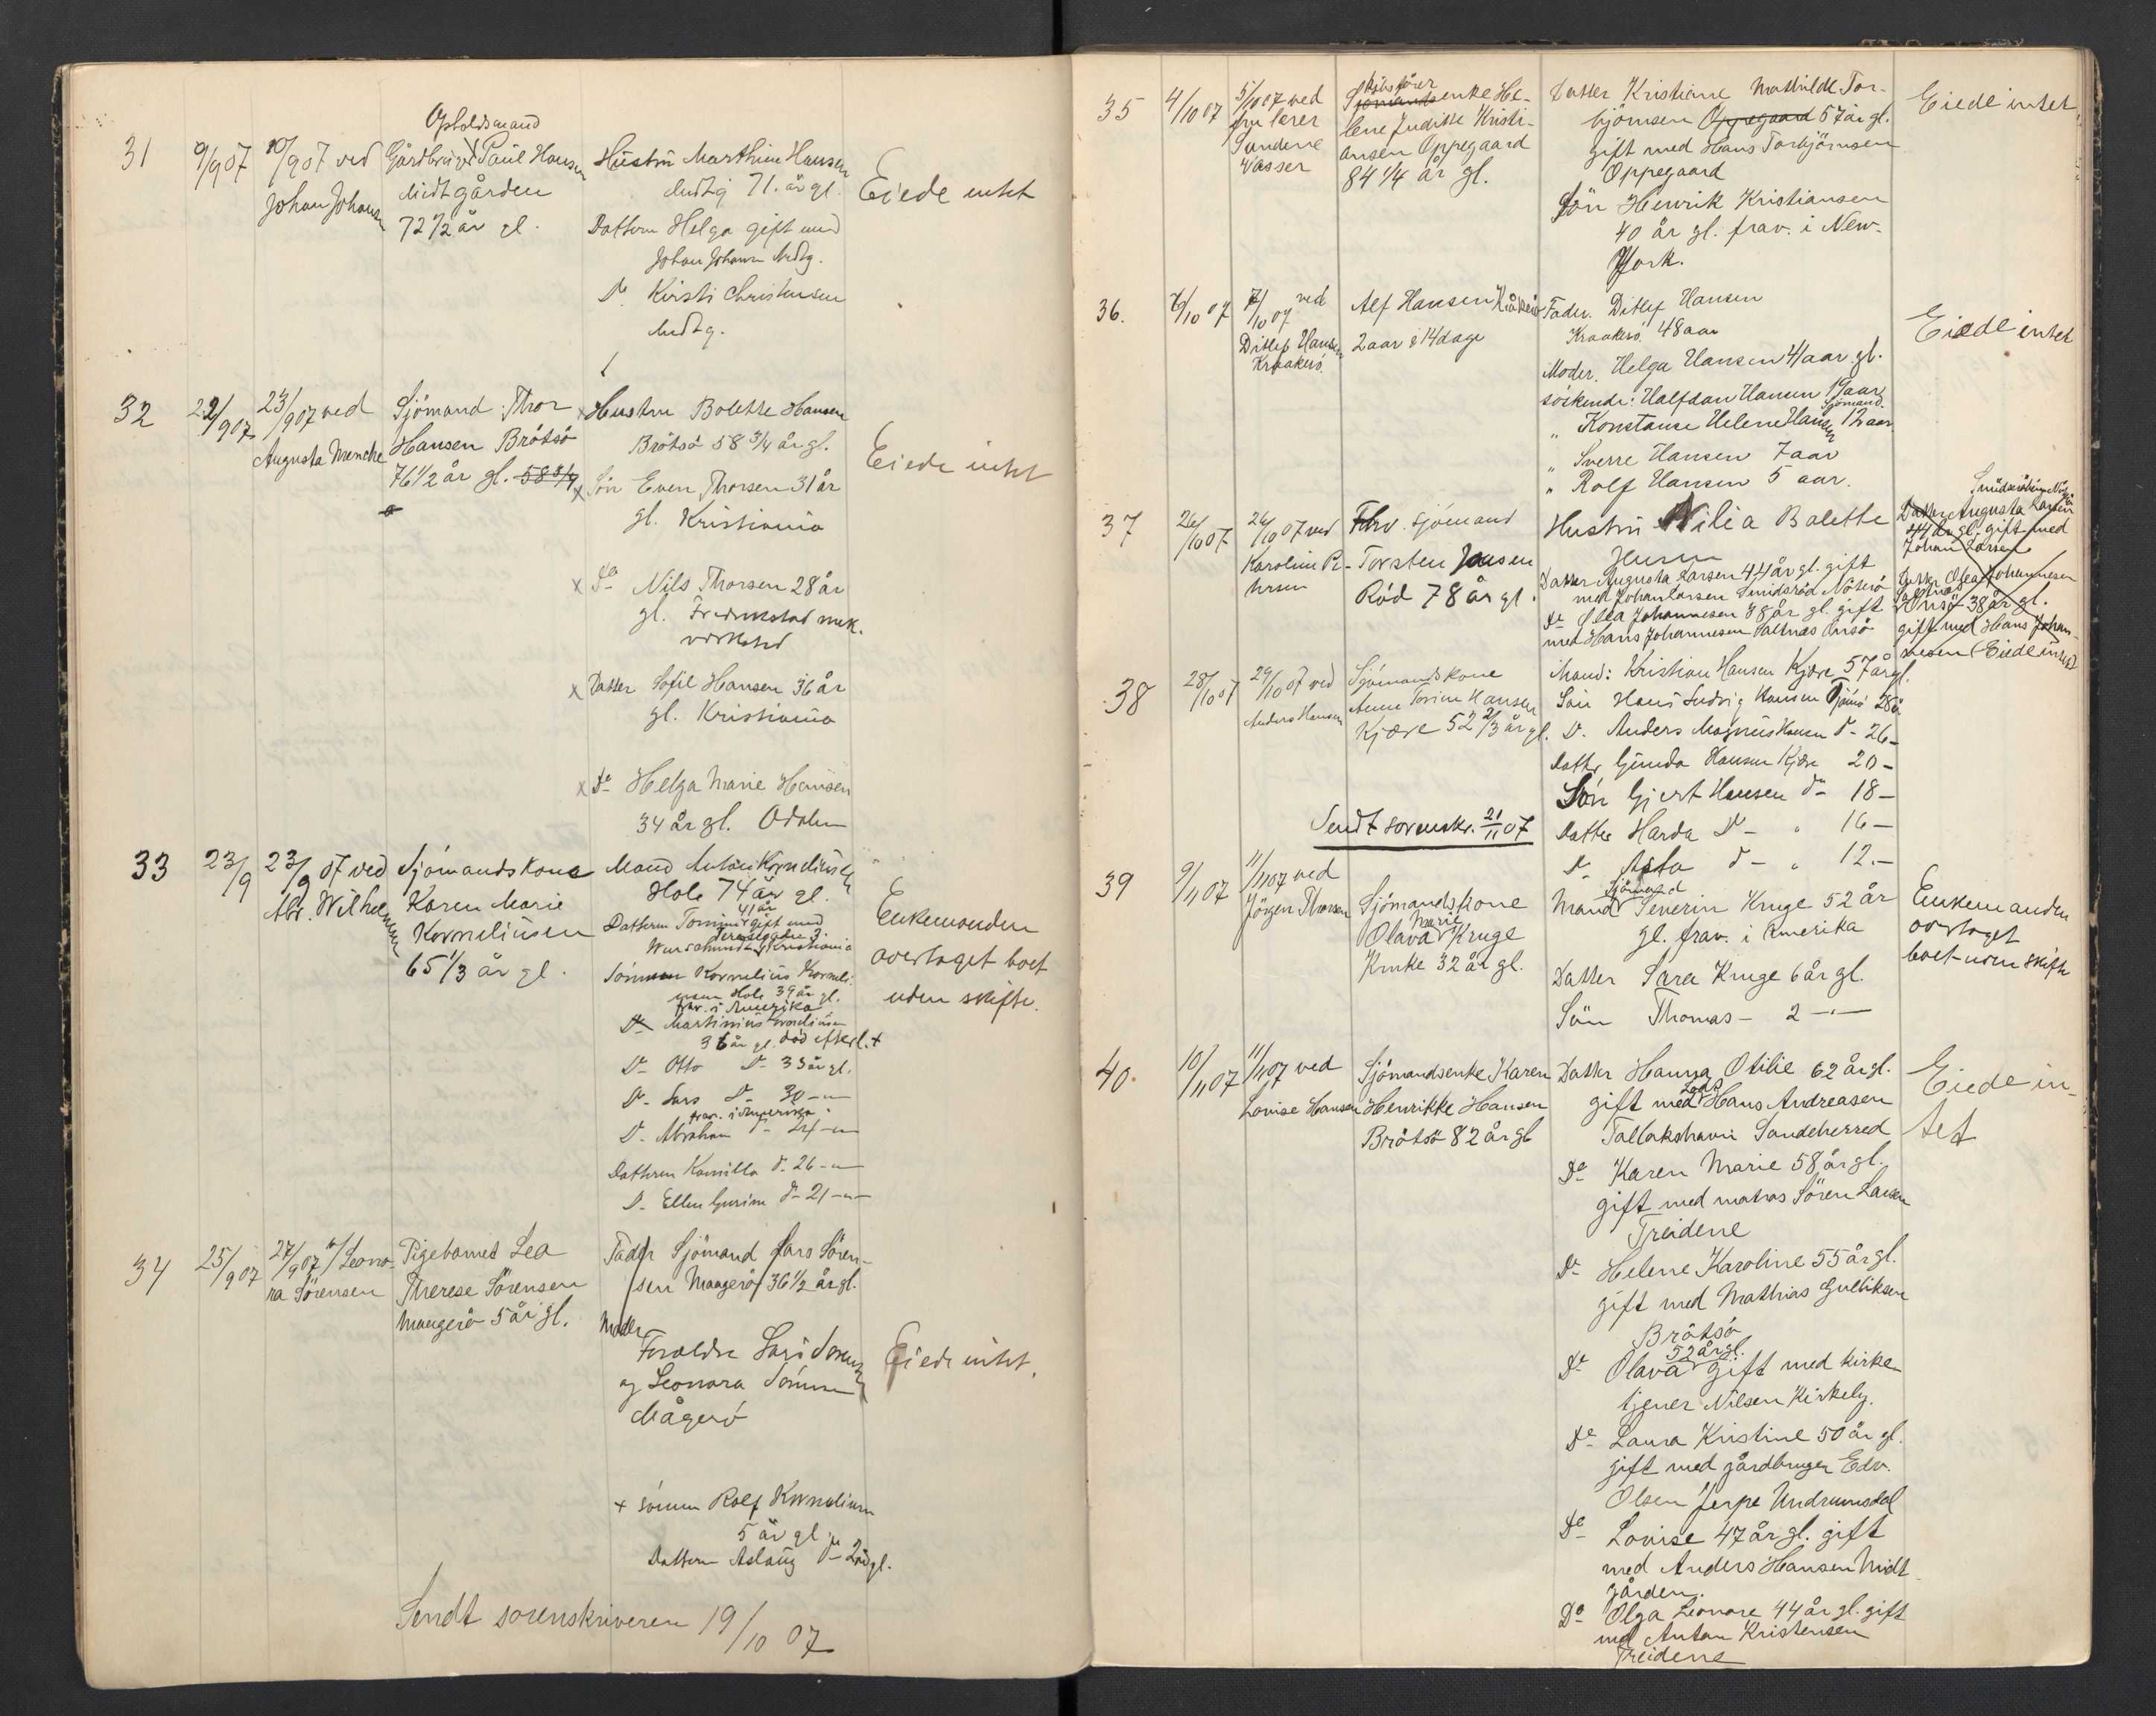 31
9/9 07
10/9 07 ved
Johan Johansen
Opholdsmand
Gårdbruger Paul Hansen
Midtgården
72 1/2 år gl.
Hustru Marthine Hansen
Midtg. 71. år gl.
Datteren Helga gift med
Johan Johansen Midtg.
Do Kirsti Christensen
Midtg.
Eiede intet
32
22/9 07
23/9 07 ved
Augusta Menche
Sjömand Thor
Hansen Brötsö
76 1/2 år gl. 58 3/4
x Hustru Bolette Hansen
Brötsö 58 3/4 år gl.
x Sön Even Thorsen 31 år
gl. Kristiania
x Do Nils Thorsen 28 år
gl. Fredrikstad mek.
verksted
x Datter Sofie Hansen 36 år
gl. Kristiania
x Do Helga Marie Hansen
34 år gl. Odalen
Eiede intet
33
23/9
23/9 07 ved
Abr. Wilhelmsen
Sjömandskone
Karen Marie
Korneliusen
65 1/3 år gl.
Mand Anton Korneliusen
Hole 74 år gl.
41 år
Datteren Tomine gift med
Teresegaden 3.
Kristiania
Sönnen Kornelius Korneli-
usen Hole 39 år gl.
frav. i Amerika
Do Martinius Korneliusen
36 år gl. död efterl. +
Do Otto Do 33 år gl.
Do Lars Do 30 -"-
frav. i Amerika
Do Abraham Do 24 -"-
Datteren Kamilla Do 26 -"-
Do Ellen Gurine Do 21 -"-
Enkemanden
overtaget boet
uden skifte.
34
25/9 07
27/9 07 v/ Leono-
ra Sörensen
Pigebarnet Lea
Therese Sörensen
Maagerö 5 år gl.
Fader Sjömand Lars Sören-
sen Maagerö 36 1/2 år gl.
Moder
Forældre Lars Sörensen
og Leonora Sörensen
Mågerö
Eiede intet.
+ sönnen Rolf Korneliusen
5 år gl.
Datteren Aslaug Do 2 år gl.
Sendt sorenskriveren 19/10 07
35
4/10 07
5/10 07 ved
fru lærer
Sundene
Vasser
Skibsförer
Sjömandsenke He-
lene Judithe Kristi-
ansen Oppegaard
84 1/4 år gl.
Datter Kristiane Mathilde Tor-
björnsen Oppegaard 57 år gl.
gift med Hans Torbjörnsen
Oppegaard
Sön Henrik Kristiansen
40 år gl. frav. i New-
York.
Eiede intet
36.
6/10 07
7/10 07 ved
Ditlef Hansen
Kraakerö.
Alf Hansen Kråkerö
2 aar & 14 dage
Fader. Ditlef Hansen
Kraakerö. 48 aar
Moder. Helga Hansen 41 aar gl.
söskende: Halfdan Hansen 19 aar
Sjömand.
" Konstanse Helene Hansen 12 aar
" Sverre Hansen 7 aar
" Rolf Hansen 5 aar.
Eiede intet
37
26/10 07
26/10 07 ved
Karoline Pe-
tersen
Fhv. sjömand
Torsten Jensen
Röd 78 år gl.
Hustru Nilia Bolette
Jensen
Datter Augusta Larsen 44 år gl. gift
med Johan Larsen Smidsröd Nöterö
Do Olea Johannesen 38 år gl. gift
med Hans Johannesen Saltnæs Onsö
Smidsröd Nöt.
Datter Augusta Larsen
44 år gl. gift med
Johan Larsen
Datter Olea Johannesen
Saltnæs
Onsö 38 år gl.
gift med Hans Johan-
nesen (Eiede intet)
38
28/10 07
29/10 07 ved
Anders Hansen
Sjömandskone
Anne Torine Hansen
Kjære 52 2/3 år gl.
Mand: Kristian Hansen Kjære 57 år gl.
Sön Hans Ludvig Hansen Tjömö 28 år
Do. Anders Magnus Hansen Do - 26 -
Datter Gunda Hansen Kjære 20 -
Sön Gjert Hansen Do 18 -
Datter Harda Do - " 16 -
Do Asta Do - " 12. -
Sendt sorenskr. 21/11 07
39
9/11 07
11/11 07 ved
Jörgen Thorsen
Sjömandskone
Marie
Olava Kruge
Kruke 32 år gl.
Sjömand
Mand Severin Kruge 52 år
gl. frav. i Amerika
Datter Sara Kruge 6 år gl.
Sön Thomas - 2 -"-
Enkemanden
overtaget
boet uden skifte
40.
10/11 07
11/11 07 ved
Lovise Hansen
Sjömandsenke Karen
Henrikke Hansen
Brötsö 82 år gl
Datter Hanna Otilie 62 år gl.
Lods
gift med Hans Andreasen
Tallakshavn Sandeherred
Do Karen Marie 58 år gl.
gift med matros Sören Larsen
Treidene
Do Helene Karoline 55 år gl.
gift med Mathias Gulliksen
Brötsö
52 år gl.
Do Olava gift med kirke-
tjener Nilsen Kirkely.
Do Laura Kristine 50 år gl.
gift med gårdbruger Edv.
Olsen Jerpe Undrumsdal
Do Lovise 47 år gl. gift
med Anders Hansen Midt-
gården.
Do Olga Leonore 44 år gl. gift
med Anton Kristensen
Treidene
Eiede in-
tet